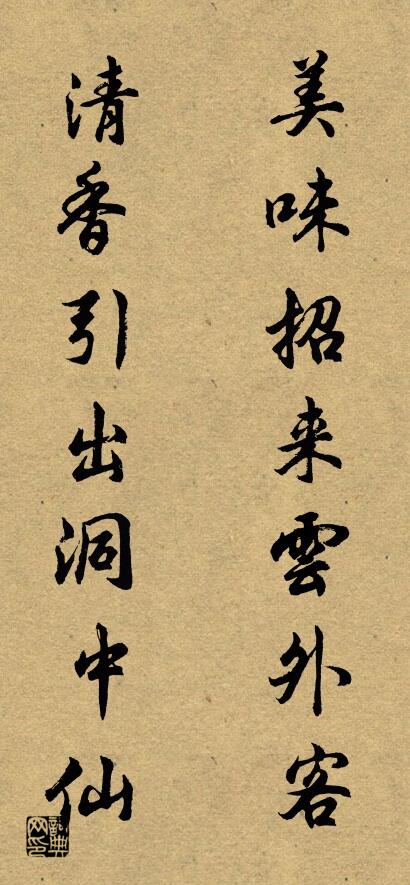 美味招来雲外客
清香引出洞中仙